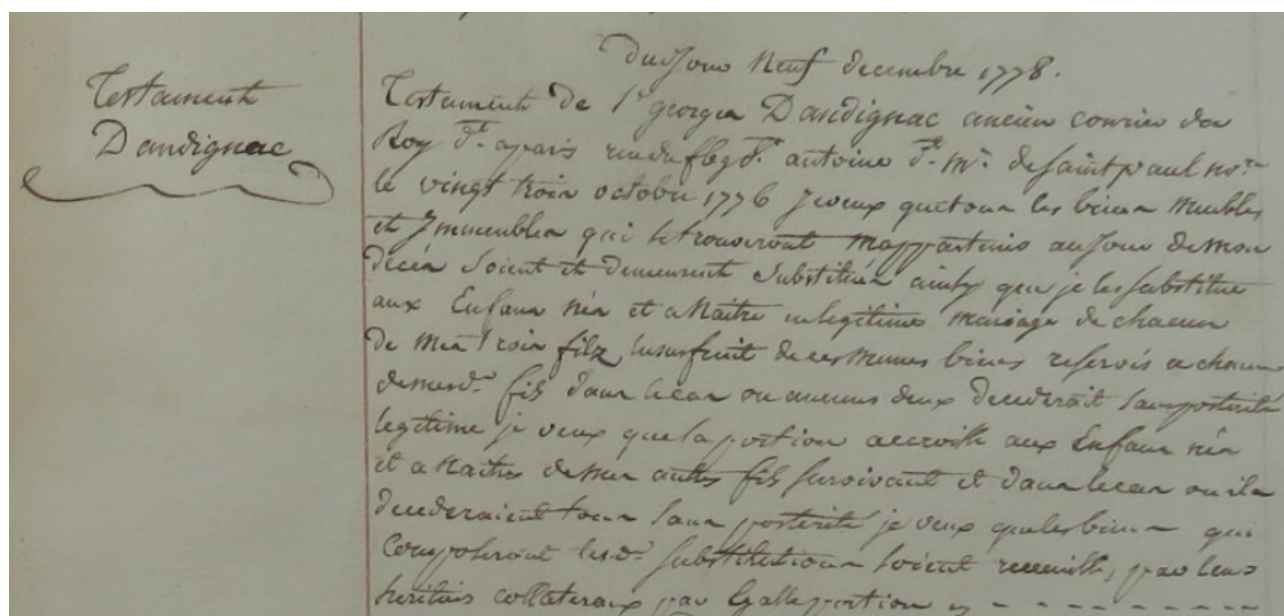 Testament
Dandignac
Du Jour Neuf decembre 1778.
Testament de Sr georges Dandignac ancien courier du
Roy dt. aparis rue du fbg St. antoine dt. Me. de Saint paul nore.
le vingt trois octobre 1776 Je veux que tous les biens meubles
et Immeubles qui se trouveront m'appartenir au Jour de mon
décès Soient et demeurent Substitués ainsy que je les substitue
aux Enfans nés et a Naitre en legitime mariage de chacun
de mes trois fils lusufruit de ces memes biens reservés a chacun
de mesd. fils dans le cas ou aucuns deux decederait Sans posterité
legitime je veux que la portion accroisse aux Enfans nés
et a Naitre de mes autres fils survivant et dans le cas ou ils
decederaient tous Sans posterité je veux que les biens qui
Composeront lesd. Substitutions Soient recueillis par leurs
heritiers collateraux par Egalle portion